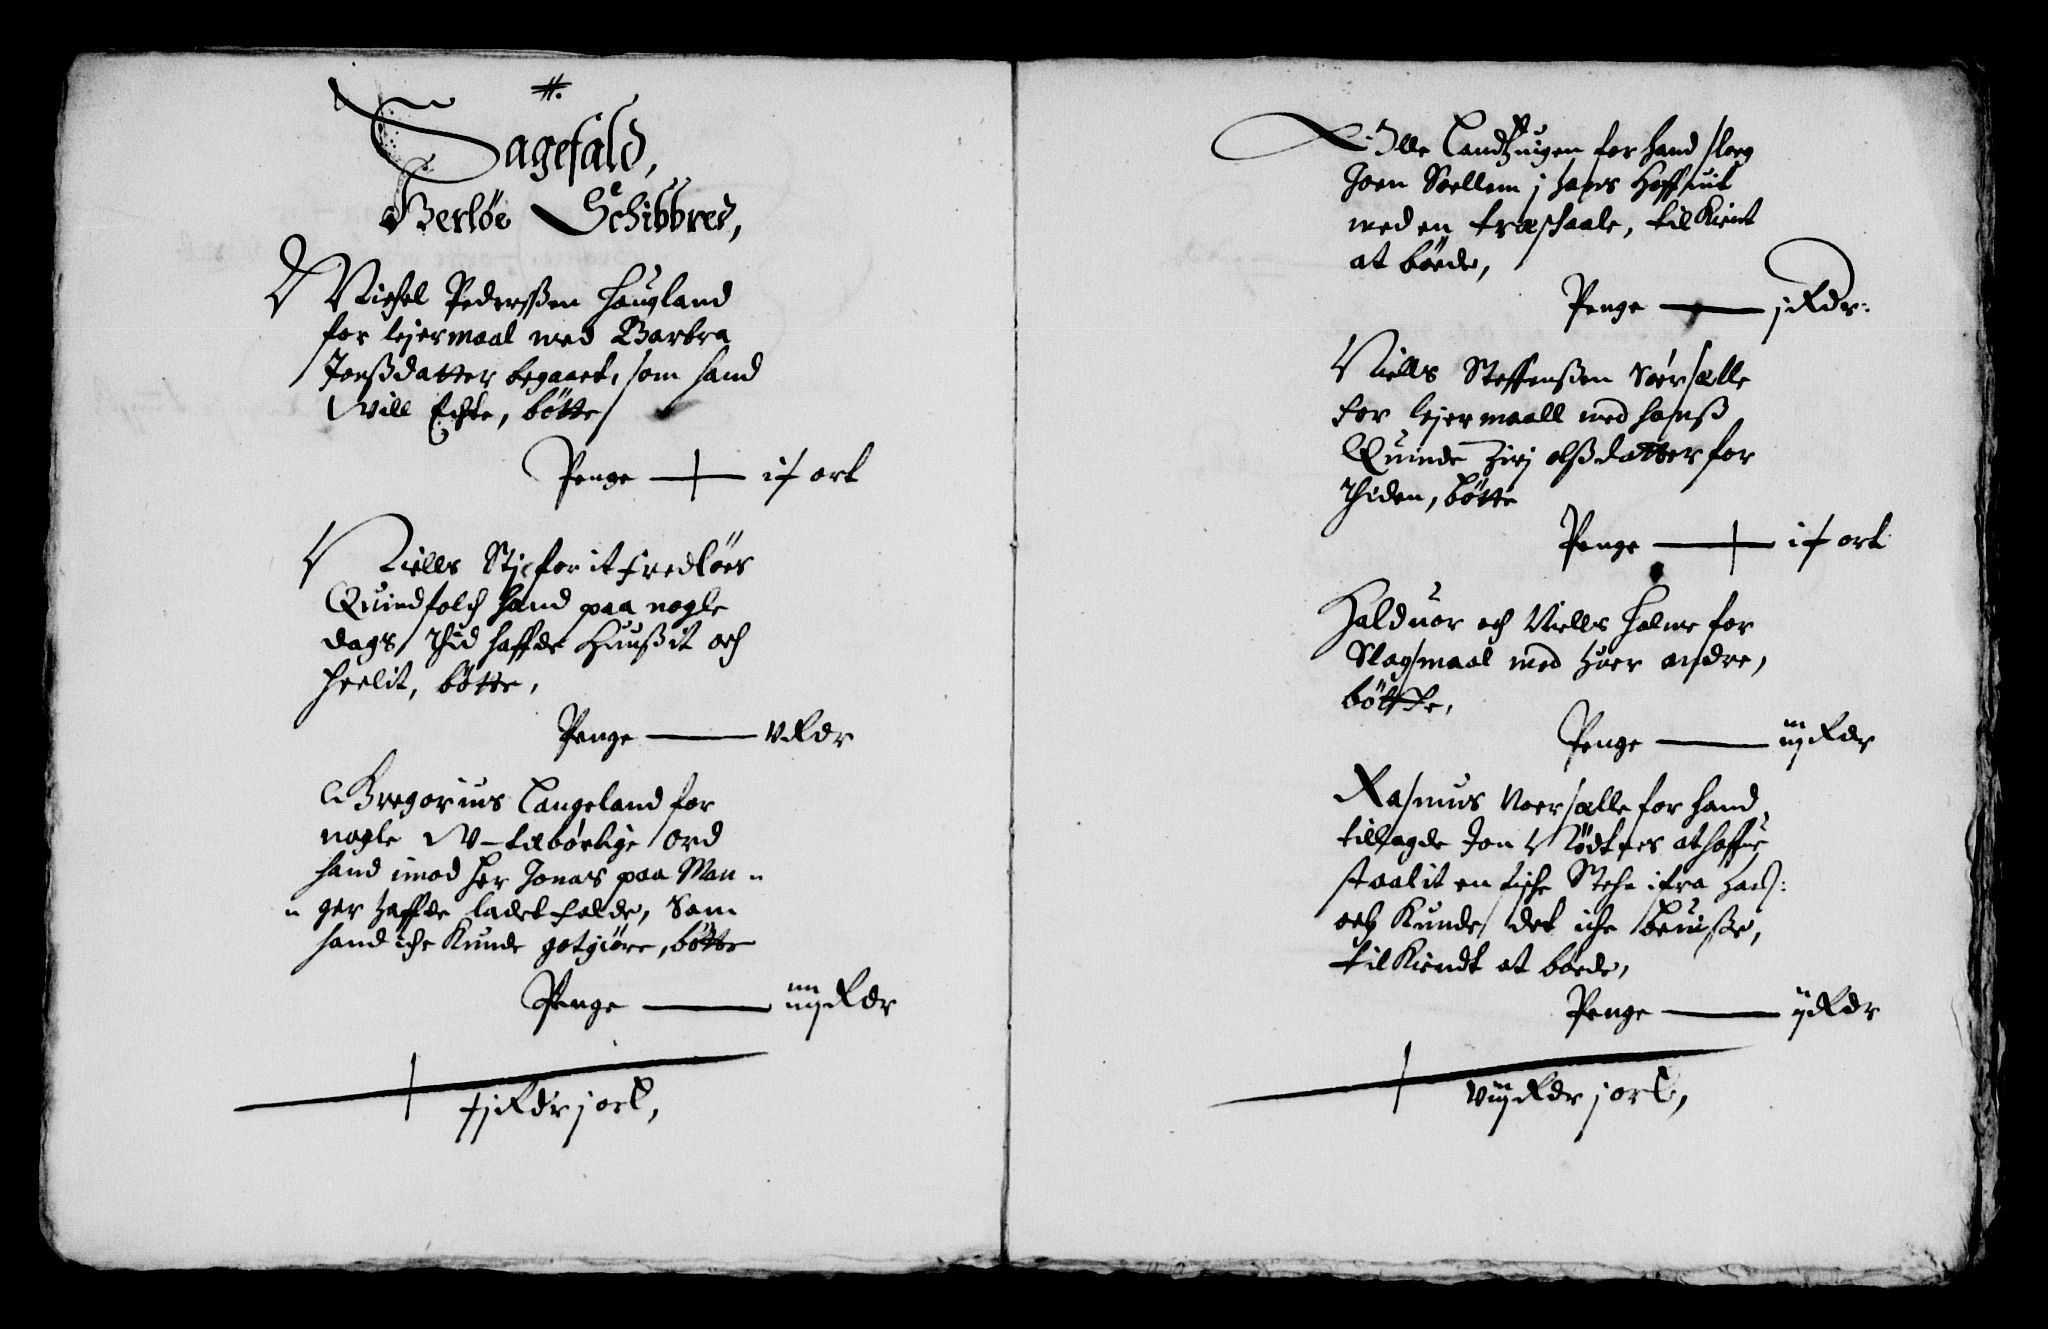 #.
Sagefald,
Herløe Schibbred,
Michel Pederßøn Haugland
for lejermaal med Barbra
Jonßdatter begaaet, som hand
Will Echte, bøtte
Penge — if ort
Niells Stj for it fredløes
Quindfolch hand paa nogle
dags thid haffde Huußit och
heelit, bøtte,
Penge — v Rdr
Gregorius Langeland for
nogle W-tilbørlige ord
hand imod Her Jonas paa Man
ger haffde ladet falde, Som
hand iche Kunde gotgiøre, bøtte
Penge — iiij Rdr
xj Rdr j ort,
Olle Landtzuigen for hand sloeg
Joen Soellem j hans Hoffuit
med en træskaale, tilKient
at bøede,
Penge — j Rdr:
Niells Steffenßøn Søersælle
for lejermaall med hanß
Quinde Zirj olßdatter for
thiden, bøtte
Penge — if ort
Halduor och Niells Holme for
Slagsmaal med huer andre,
bøtte,
Penge — iiij Rdr
Rasmus Noersælle for hand
tillagde Jon Nødtnes at haffue
staalit en fische Stehn ifra ham:
och Kunde det iche beuiße,
tilKiendt at bøede,
Penge — ij Rdr
viij Rdr j ort,